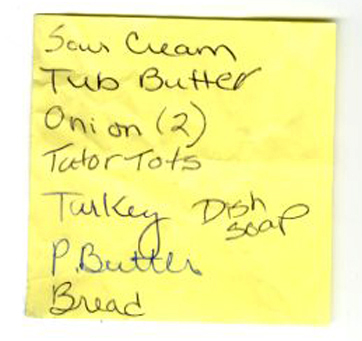 Sour Cream
Tub Butter
Onion (2)
Tator Tots
Turkey
Dish
soap
P. Butter
Bread